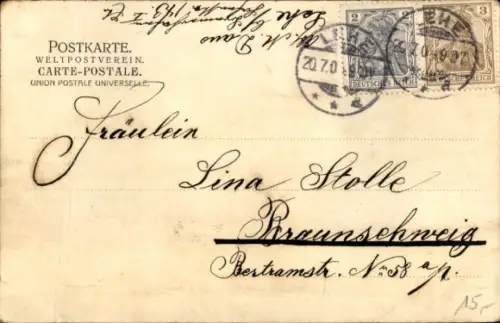 POSTKARTE.
WELTPOSTVEREIN.
CARTE-POSTALE.
UNION POSTALE UNIVERSELLE.
Lehe
2
3
LEHE
20.7.0
DEUTSCHES
LEHE
Fräulein
Lina Stolle
Braunschweig
Bertramstr. No 58 a/p.
15,-